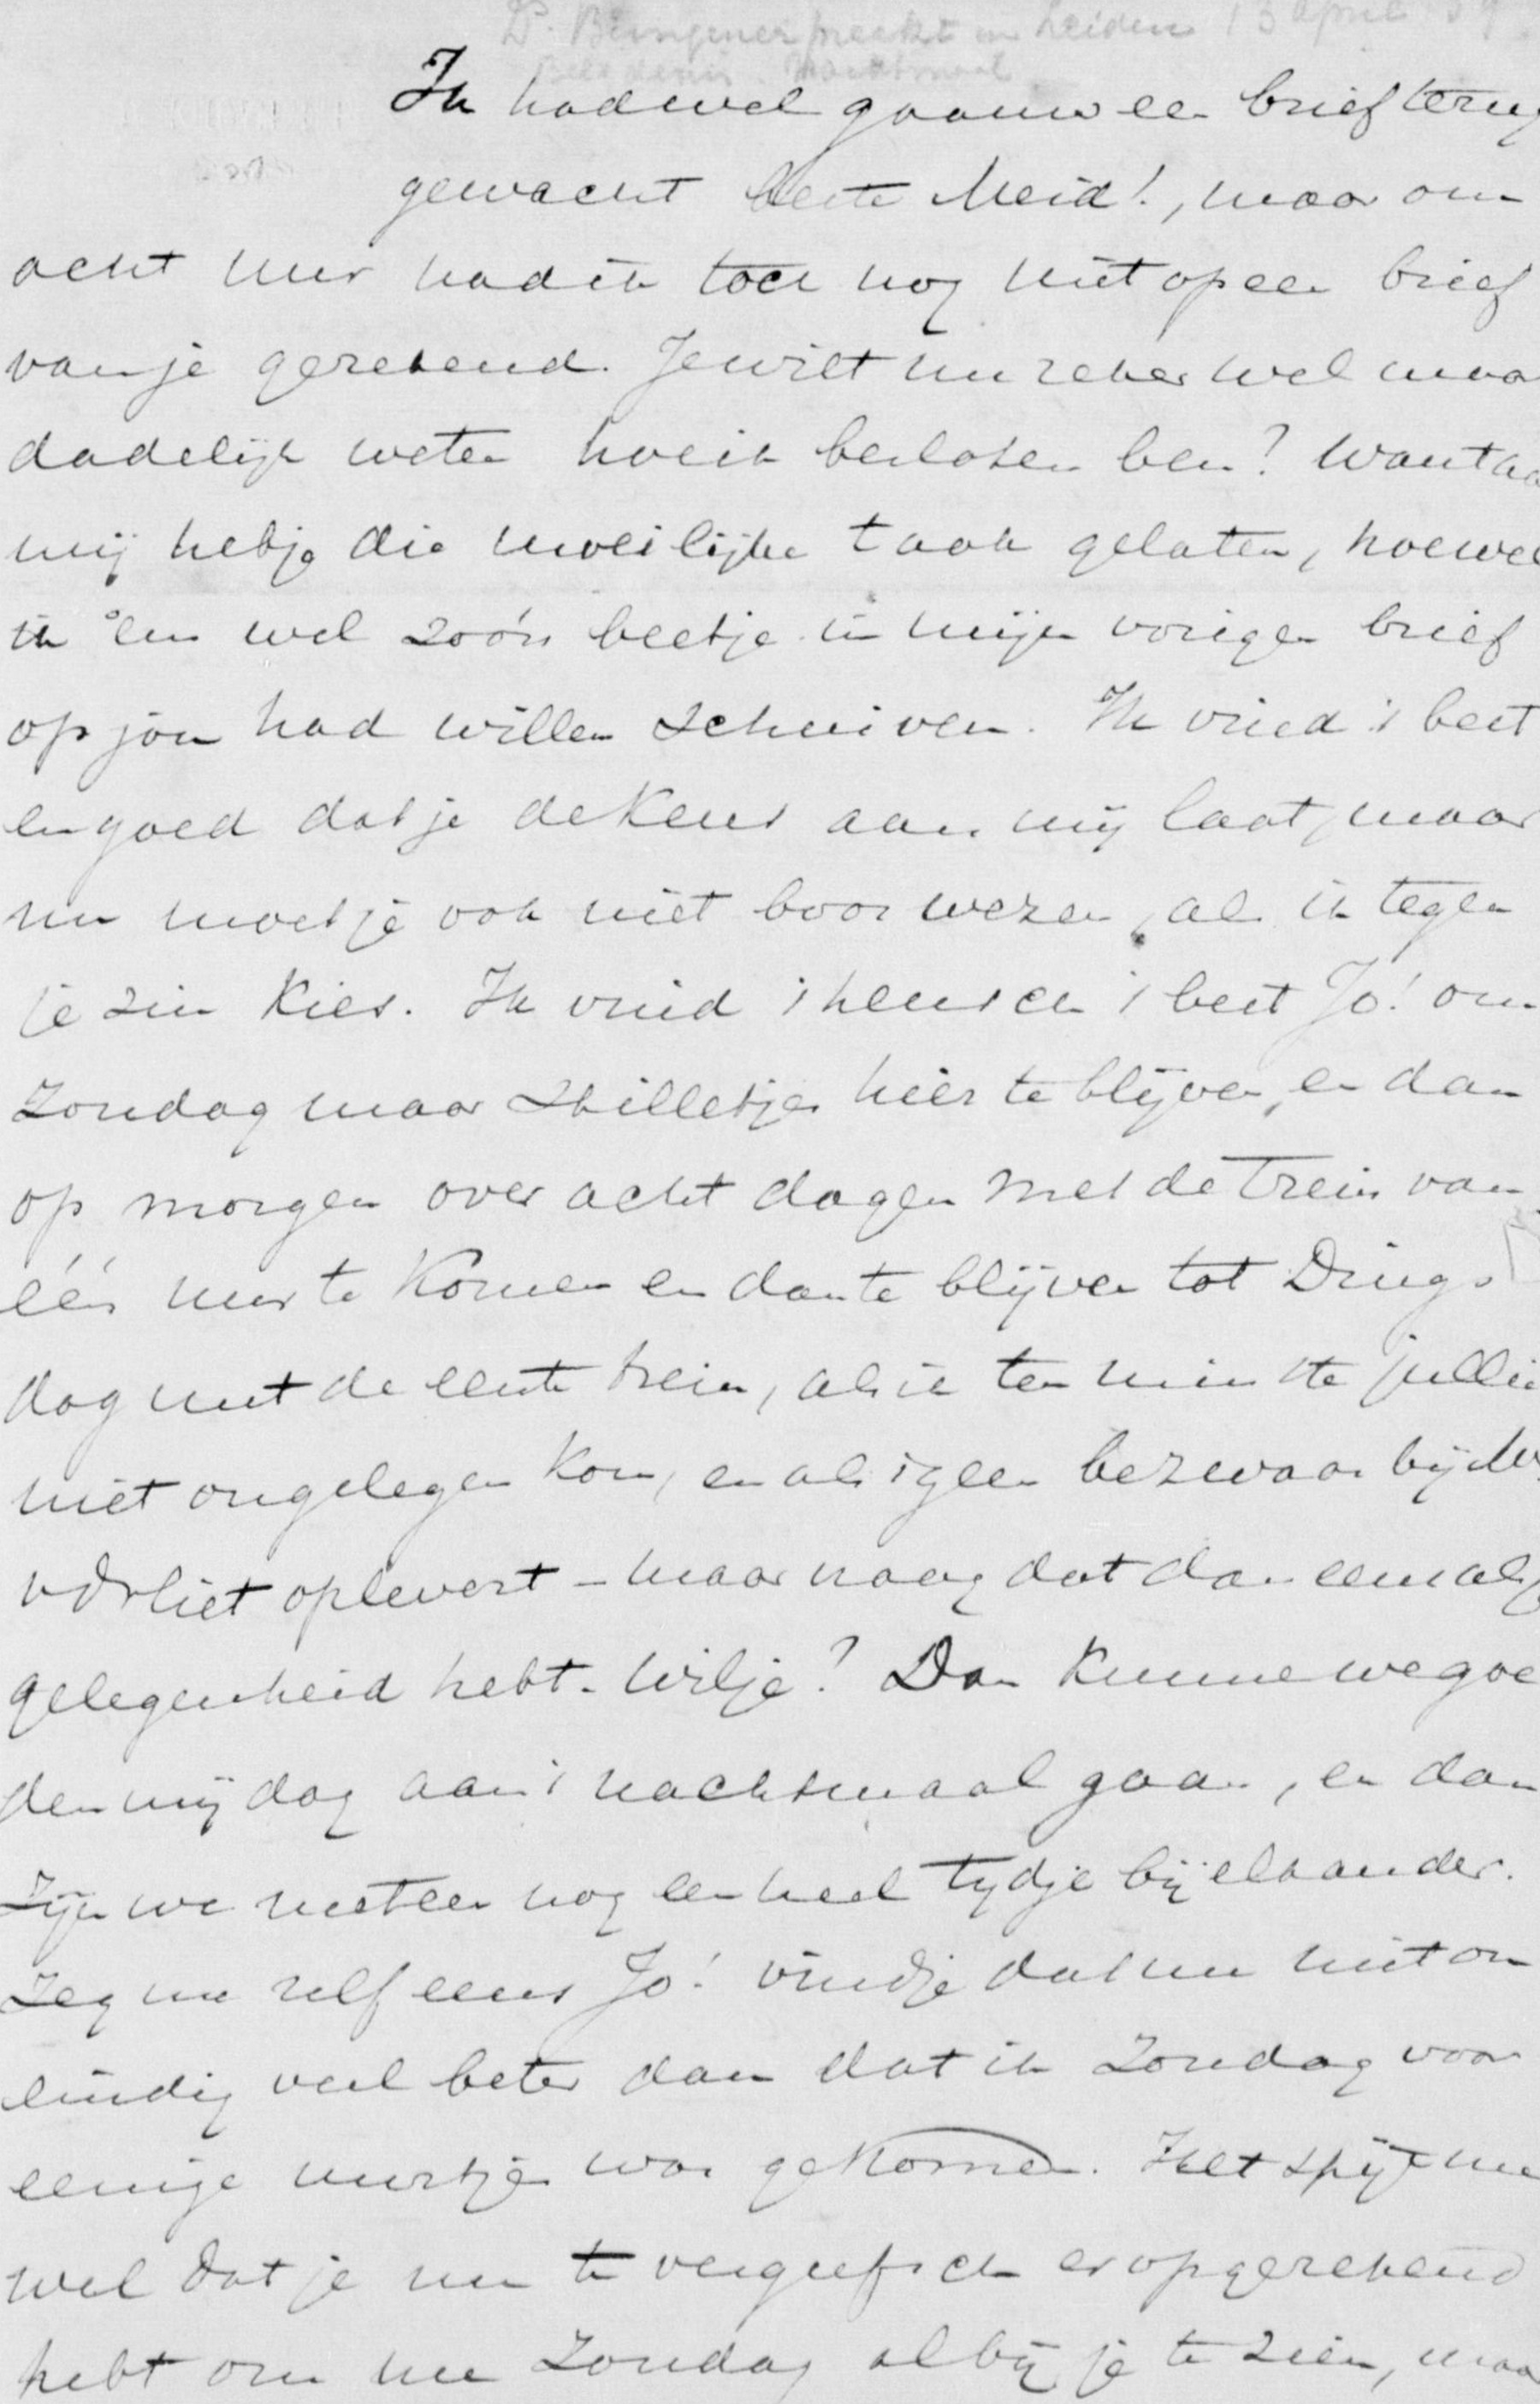 Ds. Bungener preekt in Leiden 13 april
Belijdenis. Nachtmaal
Ik had wel gaauw een brief terug
gewacht beste Meid!, maar om
acht uur had ik toch nog niet op een brief
van je gerekend. Je wilt nu zeker wel maar
dadelijk weten hoe ik besloten ben? Want aan
mij heb je die moeilijke taak gelaten, hoewel
ik 'em wel zoo'n beetje in mijn vorigen brief
op jou had willen schuiven. Ik vind 't best
en goed dat je de keus aan mij laat, maar
nu moet je ook niet boos wezen, als ik tegen
je zin kies. Ik vind 't heusch 't best Jo! om
Zondag maar stilletjes hier te blijven, en dan
op morgen over acht dagen met de trein van
één uur te komen en dan te blijven tot Dings
dag met de eerste trein, als ik ten minste jullie
niet ongelegen kom, en als 't geen bezwaar bij
oplevert - maar vraag dat dan eens als je
gelegenheid hebt. Wil je? Dan kunnen we goe
den vrijdag aan 't nachtmaal gaan, en dan
zijn we meteen nog een heel tijdje bij elkander.
Zeg nu zelf eens Jo! vind je dat nu niet on
eindig veel beter dan dat ik Zondag voor
eenige uurtjes was gekomen. Het spijt me
wel dat je nu te vergeefsch er op gerekend
hebt om me Zondag al bij je te zien, maar